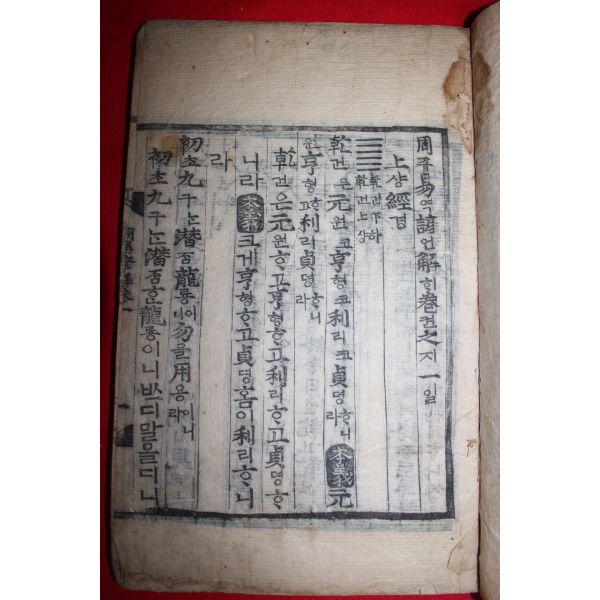 周쥬易역諺언解ᄒᆡ卷권之지一일
上샹經경
䷀ 乾건下하 乾건上샹
乾건은元원코亨형코利리코貞뎡ᄒᆞ니라 本義 元
원亨형ᄒᆞ고利리貞뎡ᄒᆞ니라
乾건은元원ᄒᆞ고亨형ᄒᆞ고利리ᄒᆞ고貞뎡ᄒᆞ
니라 本義 크게亨형ᄒᆞ고貞뎡홈이利리ᄒᆞ니
라
初초九구ᄂᆞᆫ潛ᄌᆞᆷ龍룡이니勿믈用용이니라
初초九구ᄂᆞᆫ潛ᄌᆞᆷᄒᆞᆫ龍룡이니ᄡᅳ디말올디니